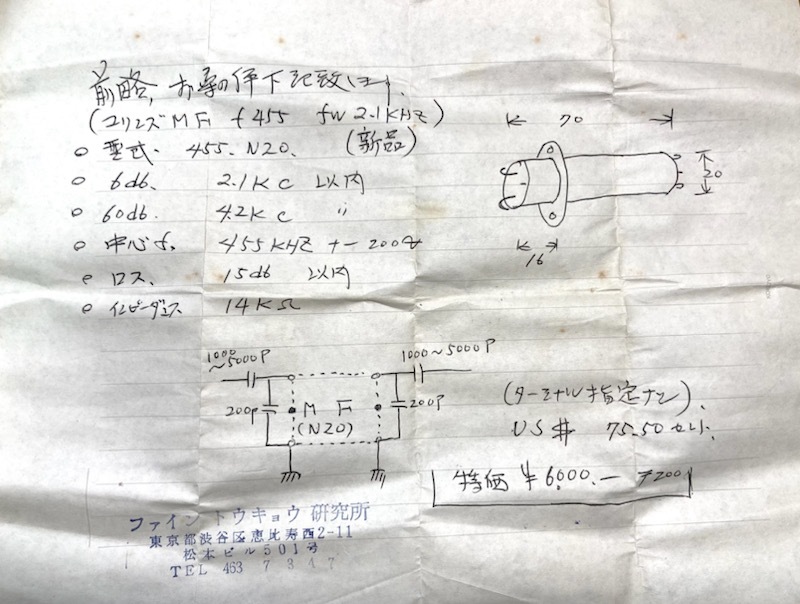 前略、お尋の件下記致します。
(コリンズMFi f455 fw 2.1KHZ)
○ 型式. 455. N20. (新品)
○ 6db. 2.1KC 以内
○ 60db. 4.2KC 〃
○ 中心f. 455KHZ +-200
○ ロス. 15db 以内
○ インピーダンス 14KΩ
70
20
16
1000~5000P
1000~5000P
200P
MFi
(N20)
200P
(ターミナル指定ナシ).
US$ 75.50セント.
特価 ¥6,000.- 〒200
ファイン トウキョウ 研究所
東京都渋谷区恵比寿西2-11
松本ビル501号
TEL 463 7347